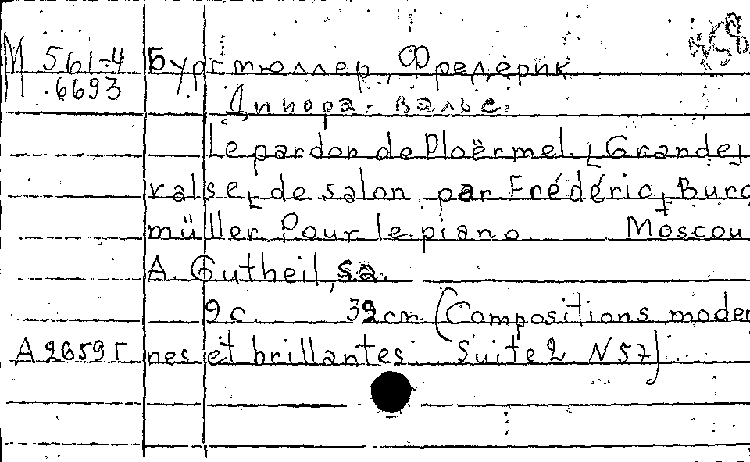 М 561-4 Бургмюллер, Фредерик
.6693
Динора-вальс.
Le pardon de Ploërmel. [Grande]
valse [de salon par Frédéric] Burg
müller Pour le piano Moscou
A. Gutheil, s.a.
9 c. 32 cm (Compositions moder
А 2659г nes et brillantes Suite 2 N 57)